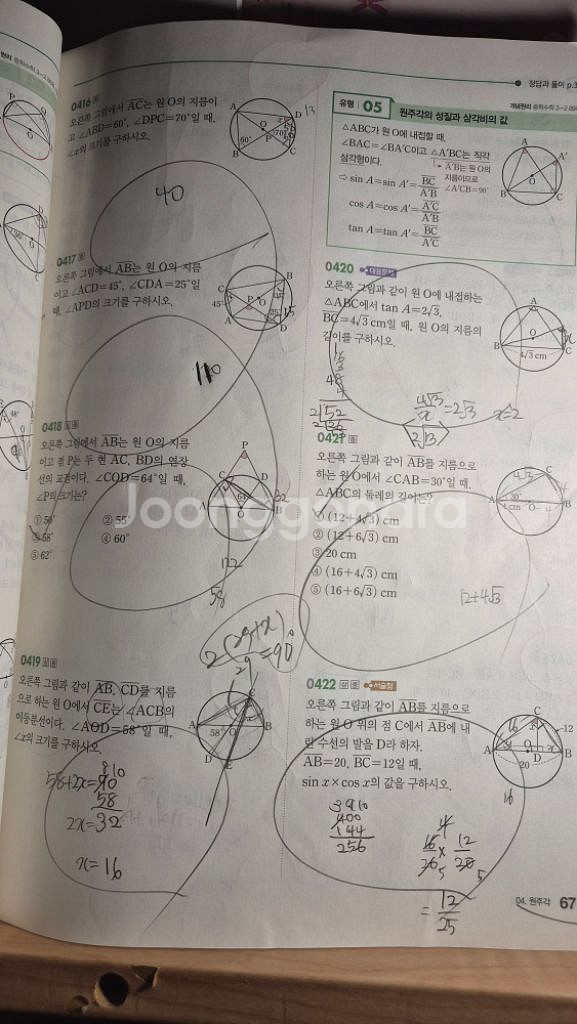 정답과 풀이 p.3
0416
오른쪽 그림에서 AC는 원 O의 지름이
고 ∠ABD=60°, ∠DPC=70°일 때,
∠x의 크기를 구하시오.
40
0417
오른쪽 그림에서 AB는 원 O의 지름
이고 ∠ACD=45°, ∠CDA=25°일
때, ∠APD의 크기를 구하시오.
110
0418
오른쪽 그림에서 AB는 원 O의 지름
이고 점 P는 두 현 AC, BD의 연장
선의 교점이다. ∠COD=64°일 때,
∠P의 크기는?
① 50° ② 55°
③ 58° ④ 60°
⑤ 62°
122
58
0419
오른쪽 그림과 같이 AB, CD를 지름
으로 하는 원 O에서 CE는 ∠ACB의
이등분선이다. ∠AOD=58°일 때,
∠x의 크기를 구하시오.
58+2x=90
58
2x=32
x=16
2(29+x)
29
=90
유형 05 원주각의 성질과 삼각비의 값
△ABC가 원 O에 내접할 때,
∠BAC=∠BA'C이고 △A'BC는 직각
삼각형이다.
A'B는 원 O의
지름이므로
∠A'CB=90°
⇨ sin A=sin A'=BC/A'B
cos A=cos A'=A'C/A'B
tan A=tan A'=BC/A'C
0420 대표문제
오른쪽 그림과 같이 원 O에 내접하는
△ABC에서 tan A=2√3,
BC=4√3 cm일 때, 원 O의 지름의
길이를 구하시오.
4√3 cm
4√3/x=2√3
x=2
2)52
2√13
0421
오른쪽 그림과 같이 AB를 지름으로
하는 원 O에서 ∠CAB=30°일 때,
△ABC의 둘레의 길이는?
① (12+4√3) cm
② (12+6√3) cm
③ 20 cm
④ (16+4√3) cm
⑤ (16+6√3) cm
12+4√3
0422 서술형
오른쪽 그림과 같이 AB를 지름으로
하는 원 O 위의 점 C에서 AB에 내
린 수선의 발을 D라 하자.
AB=20, BC=12일 때,
sin x×cos x의 값을 구하시오.
400
144
256
16/20 × 12/20
=12/25
16
04. 원주각 67
Joonggonara